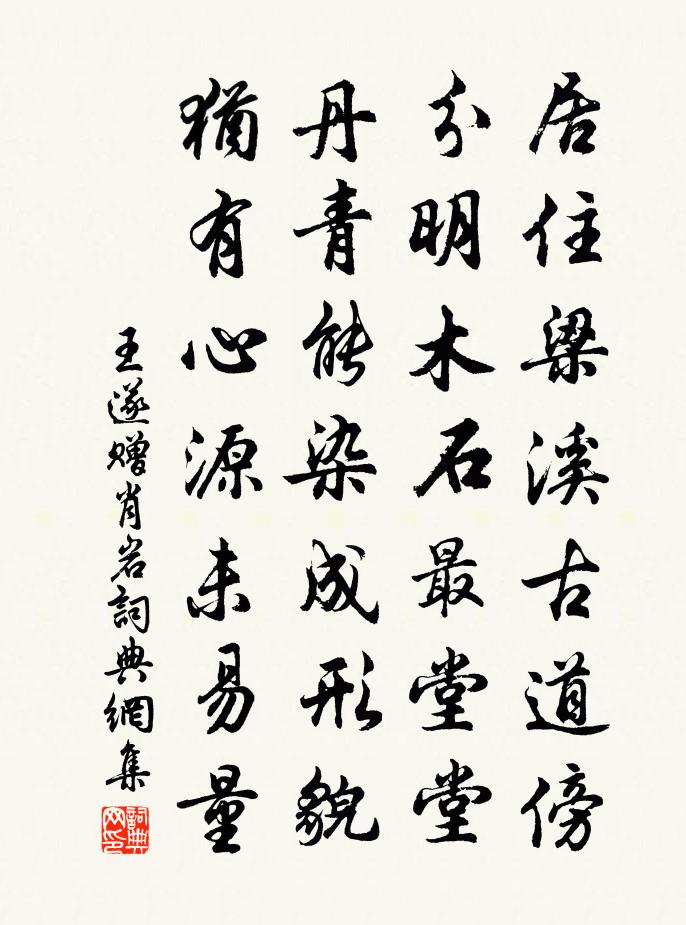 居住梁溪古道傍
分明木石最堂堂
丹青能染成形貌
猶有心源未易量
王遂赠肖岩詞典網集
詞典网印